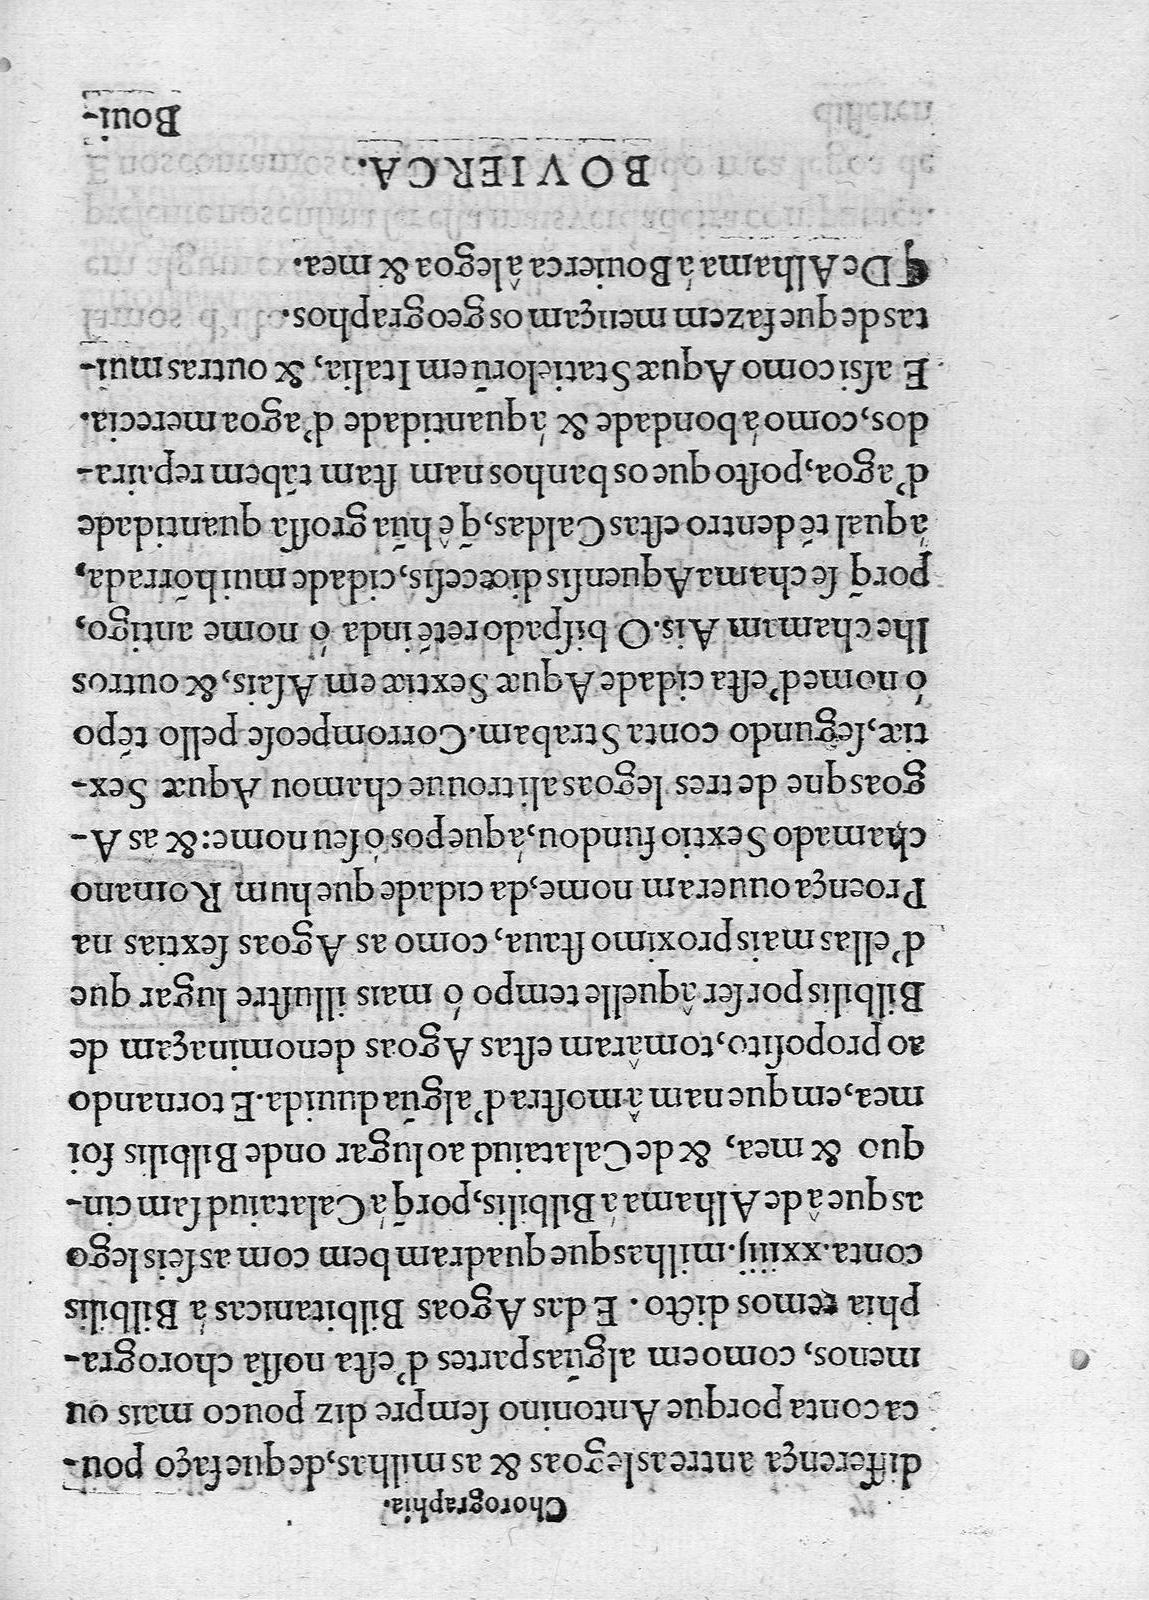 Chorographia.
differença antre as legoas & as milhas, de que faço pou-
ca conta porque Antonino ſempre diz pouco mais ou
menos, como em algũas partes d'eſta noſſa chorogra-
phia temos dicto. E das Agoas Bilbitanicas á Bilbilis
conta. xxiiij. milhas que quadram bem com as ſeis lego
as que â de Alhama á Bilbilis, porq̃ á Calataiud ſam cin-
quo & mea, & de Calataiud ao lugar onde Bilbilis foi
mea, em que nam â moſtra d'algũa duuida. E tornando
ao propoſito, tomâram eſtas Agoas denominaçam de
Bilbilis por ſer âquelle tempo ó mais illuſtre lugar que
d'ellas mais proximo ſtaua, como as Agoas ſextias na
Proença ouueram nome, da cidade que hum Romano
chamado Sextio fundou, á que pos ó ſeu nome: & ás A-
goas que de tres legoas ali trouue chamou Aquæ Sex-
tiæ, ſegundo conta Strabam. Corrompeoſe pello tẽpo
ó nome d'eſta cidade Aquæ Sextiæ em Aſais, & outros
lhe chamam Ais. O biſpado retẽ inda ó nome antigo,
porq̃ ſe chama Aquenſis diœceſis, cidade mui hõrrada,
á qual tẽ dentro eſtas Caldas, q̃ ê hũa groſſa quantidade
d'agoa, poſto que os banhos nam ſtam tãbem repaira-
dos, como á bondade & á quantidade d'agoa merecia.
E aſsi como Aquæ Statielorũ em Italia, & outras mui-
tas de que fazem mençam os geographos.
¶ De Alhama á Bouierca â legoa & mea.
BOVIERCA.
Boui-